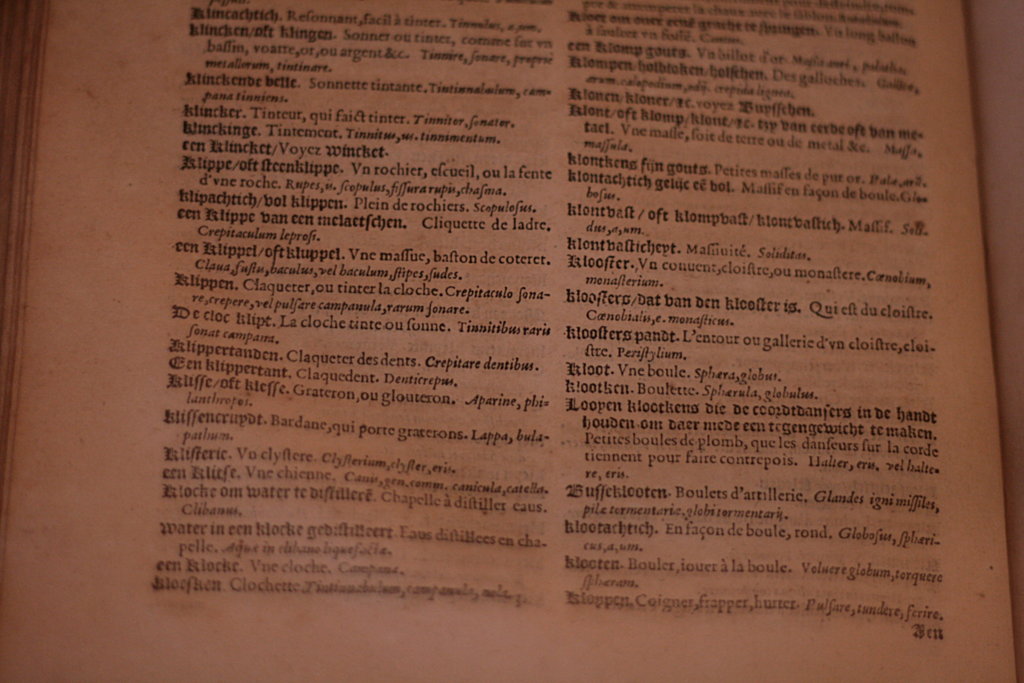 Klincachtich. Resonnant, facil à tinter. Tinnulus, a, um.
klincken/oft klingen. Sonner ou tinter, comme fait vn
bassin, voarre, or, ou argent &c. Tinnire, sonare, propriè
metallorum, tintinare.
klinckende belle. Sonnette tintante. Tintinnabulum, cam-
pana tinniens.
klincker. Tinteur, qui faict tinter. Tinnitor, sonator.
klinckinge. Tintement. Tinnitus, us. tinnimentum.
een Klincket/Voyez Wincket.
Klippe/oft steenklippe. Vn rochier, escueil, ou la fente
d'vne roche. Rupes, is. scopulus, fissura rupis, chasma.
klipachtich/vol klippen. Plein de rochiers. Scopulosus.
een Klippe van een melaetschen. Cliquette de ladre.
Crepitaculum leprosi.
een Klippel/oft kluppel. Vne massue, baston de coteret.
Claua, fustis, baculus, vel baculum, stipes, sudes.
Klippen. Claqueter, ou tinter la cloche. Crepitaculo sona-
re, crepere, vel pulsare campanula, rarum sonare.
De cloc klipt. La cloche tinte ou sonne. Tinnitibus raris
sonat campana.
Klippertanden. Claqueter des dents. Crepitare dentibus.
Een klippertant. Claquedent. Denticrepus.
Klisse/oft klesse. Grateron, ou glouteron. Aparine, phi-
lanthropos.
klissencruydt. Bardane, qui porte graterons. Lappa, bula-
pathum.
Klisterie. Vn clystere. Clysterium, clyster, eris.
een Klitse. Vne chienne. Canis, gen. comm. canicula, catella.
Klocke om water te distillerē. Chapelle à distiller eaus.
Clibanus.
Water in een klocke gedistilleert. Eaus distillees en cha-
pelle. Aqua in clibano liquefacta.
een Klocke. Vne cloche. Campana.
klocksken. Clochette. Tintinnabulum, campanula, nola
à sauter vn fossé. Contus.
een Klomp gouts. Vn billot d'or. Massa auri, palacra.
Klompen, holblocken/holschen. Des galloches.
arum. calopodium, crepida lignea.
Klonen/kloner/&c. voyez Buysschen.
Klont/oft klomp/klont/&c. typ van eerde oft van me-
tael. Vne masse, soit de terre ou de metal &c. Massa,
massula.
klontkens fijn gouts. Petites masses de pur or.
klontachtich gelijc eē bol. Massif en façon de boule. Glo-
bosus.
klontvast / oft klompvast/klontvastich. Massif. Soli-
dus, a, um.
klontvasticheyt. Massiuité. Soliditas.
Klooster. Vn conuent, cloistre, ou monastere. Cœnobium,
monasterium.
kloosters/dat van den klooster is. Qui est du cloistre.
Cœnobialis, e. monasticus.
kloosters pandt. L'entour ou gallerie d'vn cloistre, cloi-
stre. Peristylium.
Kloot. Vne boule. Sphæra, globus.
klootken. Boulette. Sphærula, globulus.
Loopen klootkens die de coordtdansers in de handt
houden om daer mede een tegengewicht te maken.
Petites boules de plomb, que les danseurs sur la corde
tiennent pour faire contrepois. Halter, eris, vel halte-
re, eris.
Busseklooten. Boulets d'artillerie. Glandes ignimissiles,
pilæ tormentariæ, globi tormentarij.
klootachtich. En façon de boule, rond. Globosus, sphæri-
cus, a, um.
klooten. Bouler, iouer à la boule. Voluere globum, torquere
sphæram.
Kloppen. Coigner, frapper, hurter. Pulsare, tundere, ferire.
Ben